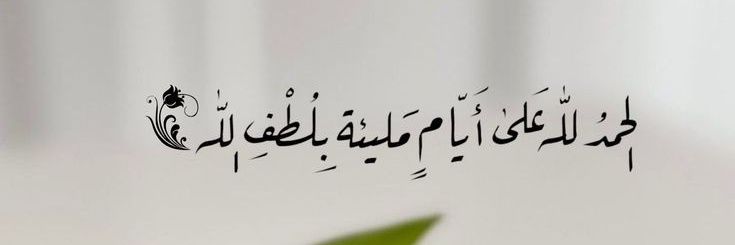 الحمدُ للّٰه عَلىٰ أَيّامٍ مَليئة بِلُطْفِ اللّٰه